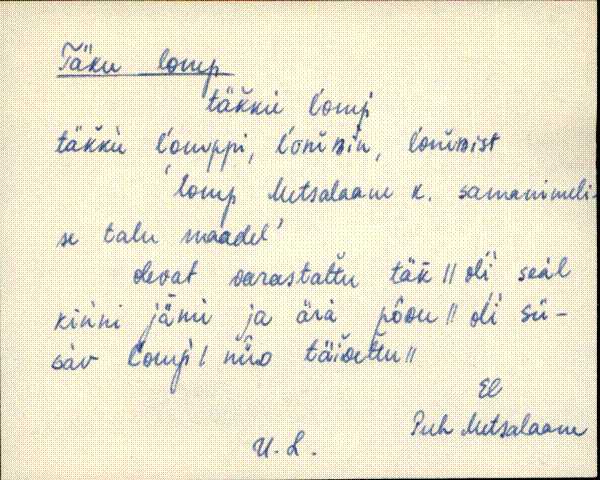 Täku lomp
täkkù lomp̀
täkkù lomppi, lom̆ʙin, lom̆ʙist
'lomp Metsalaane k. samanimeli-
se talu maadel'
olevat varastattu täk̆ // oli seäl
kin̆ni jänù ja ärà põou // oli sü-
sàv lomp̀ / nǖo täiᴅettu //
El
Puh Metsalaane
U. L.